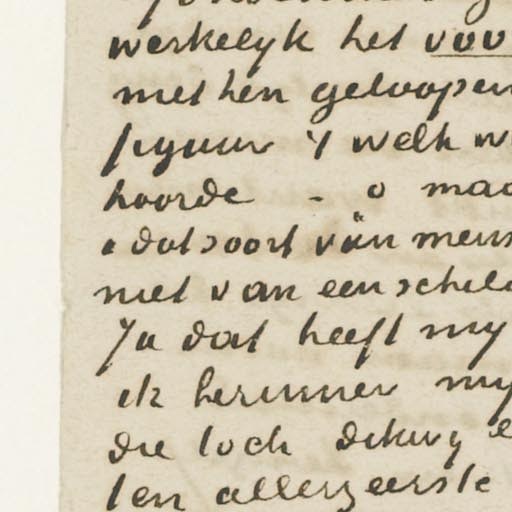 werkelyk het voo
met hen geloopen
figuur 't welk w
hoorde - o maa
dat soort van mens
niet van een schild
Ja dat heeft my
ik herinner my
die toch dikwy e
ten allereerste